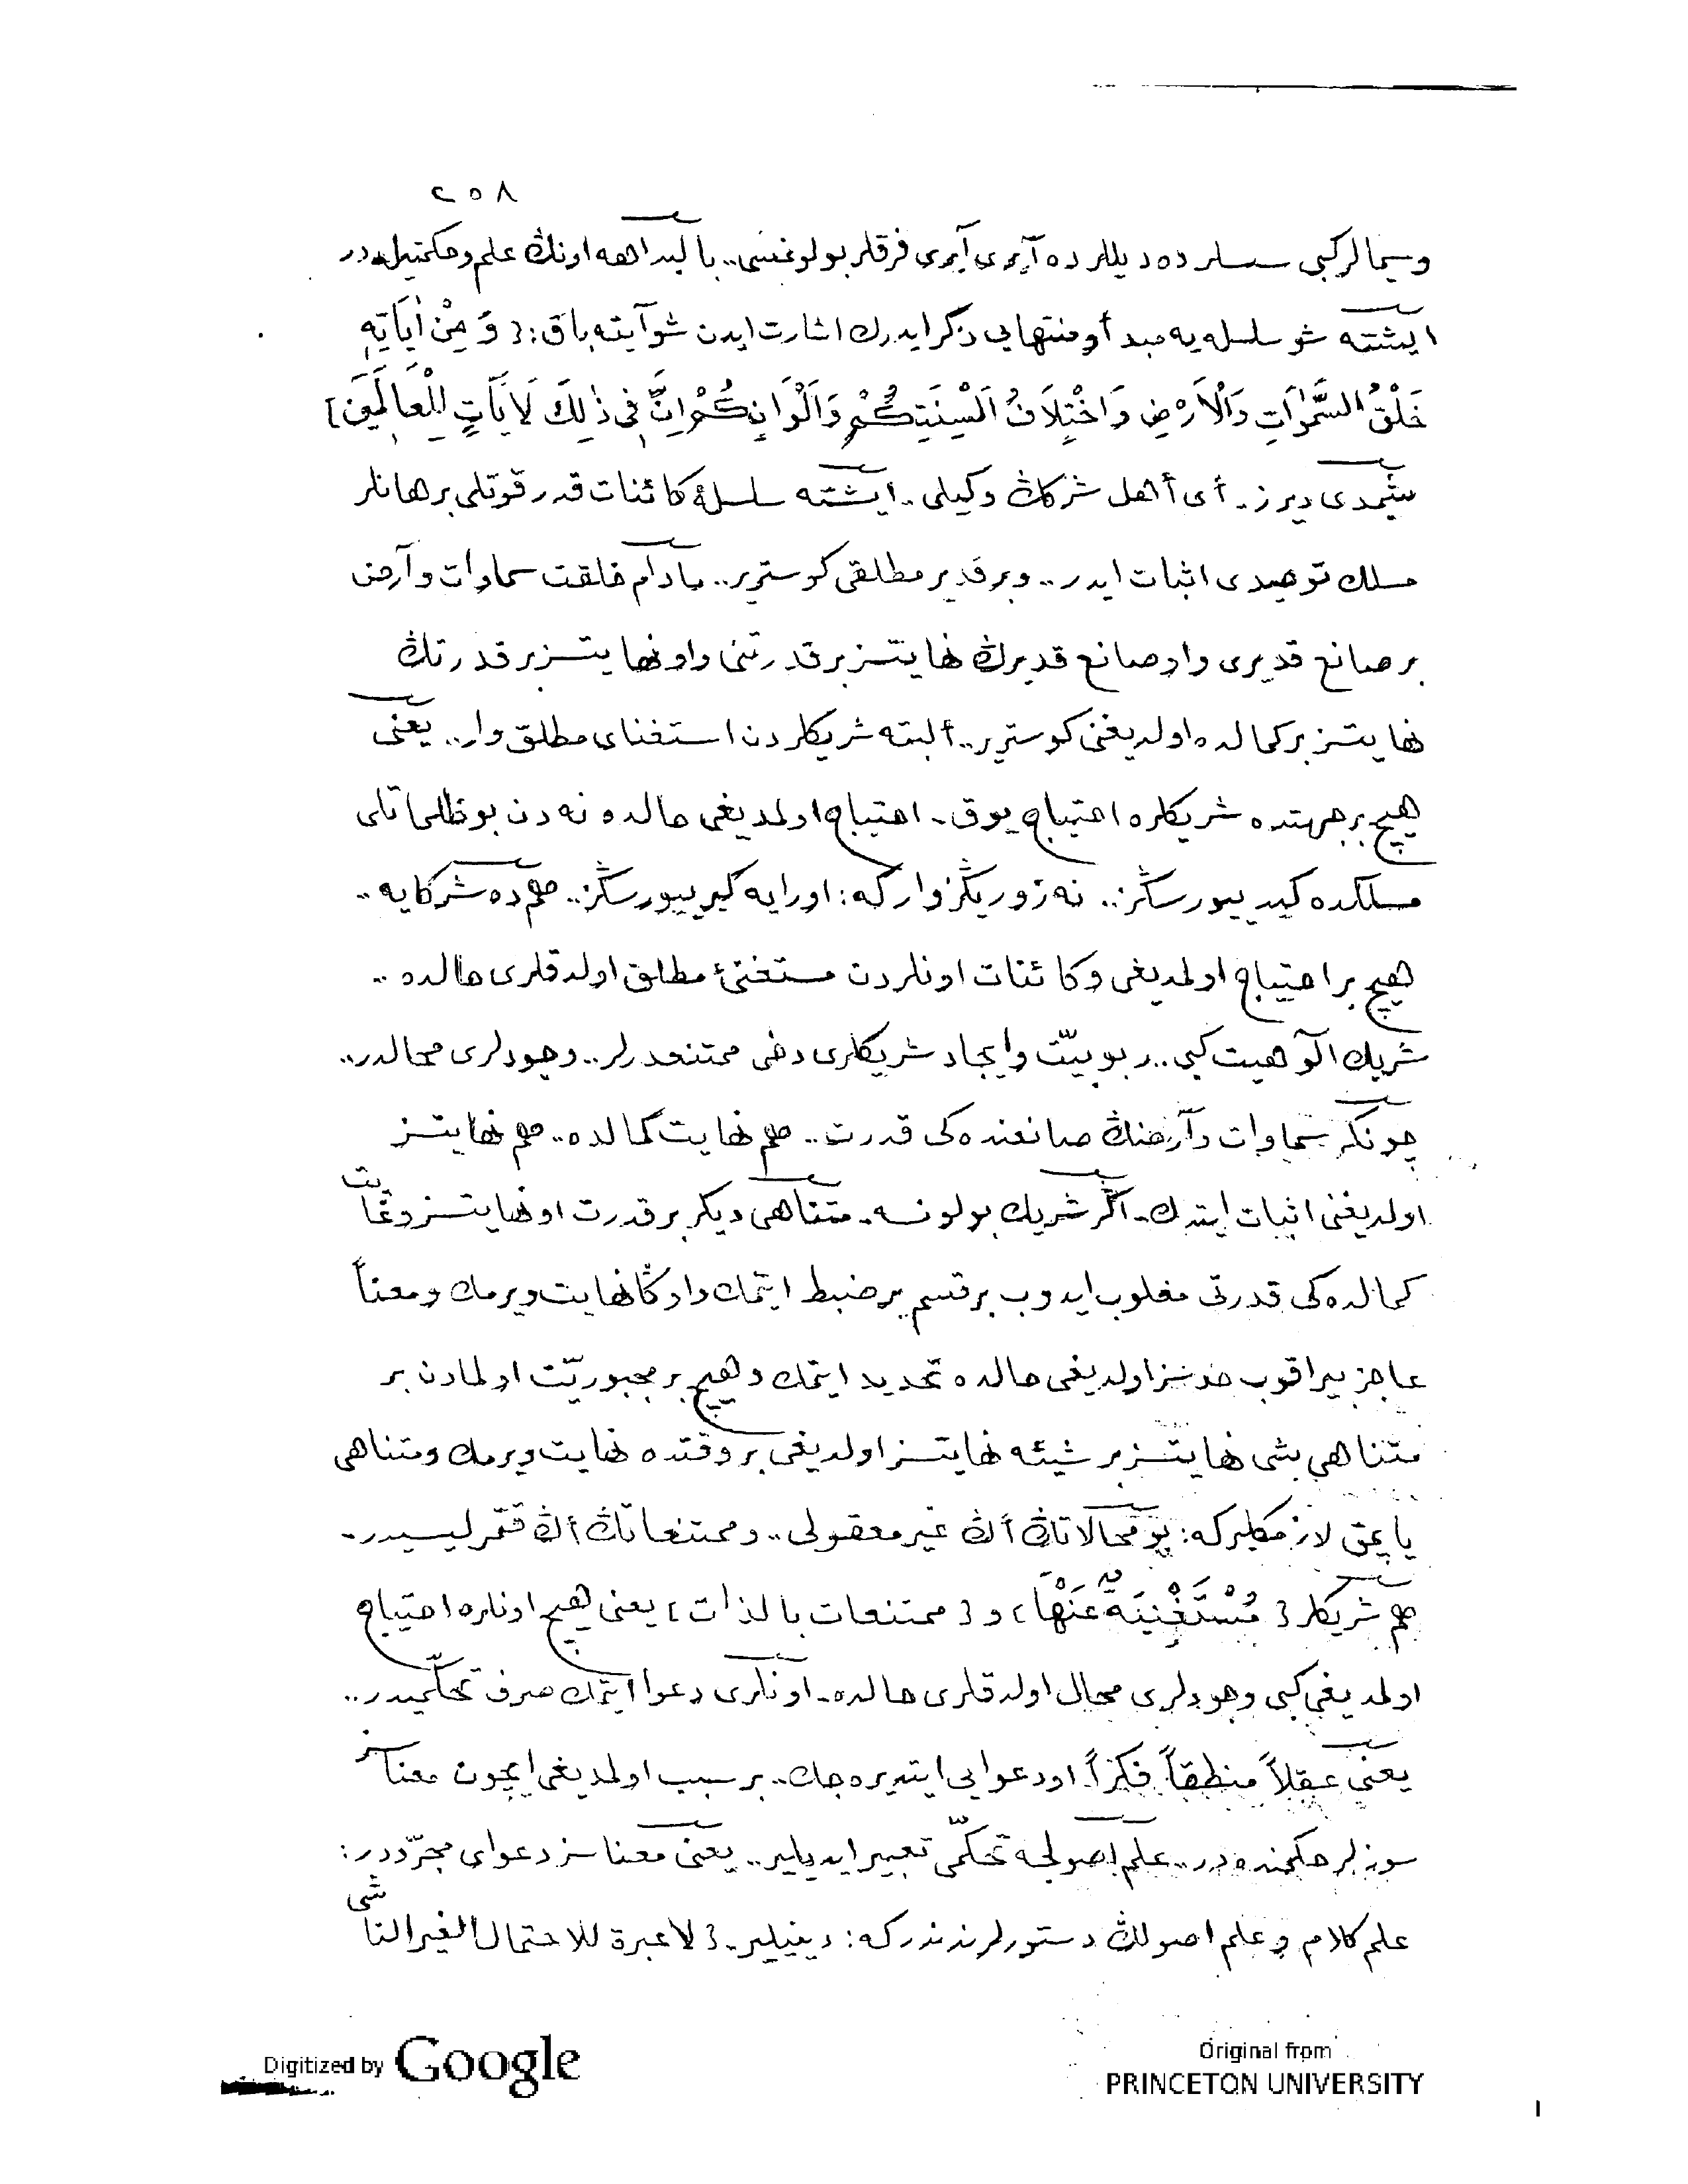 ٢٥٨
وسیمالر کبی سسلرده دیللرده آیری آیری فرقلر بولونمسی.. بالبداهه اونڭ علم و حكمتیله در
ایشته شو سلسله یه مبدأ و منتهایی ذكر ایدرك اشارت ایدن شو آیته باق: { وَ مِنْ اٰیَاتِهِ
خَلْقُ السَّمٰوَاتِ وَالْاَرْضِ وَاخْتِلَافُ اَلْسِنَتِكُمْ وَاَلْوَانِكُمْ اِنَّ فِی ذٰلِكَ لَاٰیَاتٍ لِلْعَالَمِینَ }
شیمدی دیرز. أی أهل شركڭ وكیلی. ایشته سلسلۀ كائنات قدر قوتلی برهانلر
مسلك توحیدی اثبات ایدر.. و بر قدیر مطلقی كوستریر.. مادام خلقت سماوات و آرض
بر صانع قدیری و او صانع قدیرڭ نهایتسز بر قدرتنی و او نهایتسز بر قدرتڭ
نهایتسز بر كمالده اولدیغنی كوستریر.. ألبته شریكلردن استغنای مطلق وار.. یعنی
هیچ بر جهتده شریكلره احتیاج یوق. احتیاج اولمدیغی حالده نه دن بو ظلماتلی
مسلكده كیدییورسڭز.. نه زوریڭز وار كه: اورایه كیرییورسڭز.. هم ده شركایه..
هیچ بر احتیاج اولمدیغی و كائنات اونلردن مستغنیٔ مطلق اولدقلری حالده..
شریك الوهیت كبی.. ربوبیّت و ایجاد شریكلری دخی ممتنعدرلر.. وجودلری محالدر..
چونكه سماوات و آرضنڭ صانعنده كی قدرت.. هم نهایت كمالده.. هم نهایتسز
اولدیغنی اثبات ایتدك. اگر شریك بولونسه. متناهی دیگر بر قدرت او نهایتسز و غایت
كمالده كی قدرتی مغلوب ایدوب بر قسم یر ضبط ایتمك و اوكا نهایت ویرمك و معناً
عاجز بیراقوب حدسز اولدیغی حالده تحدید ایتمك و هیچ بر مجبوریّت اولمادن بر
متناهی شی نهایتسز بر شیئه نهایتسز اولدیغی بر وقتده نهایت ویرمك و متناهی
یاپمق لازمكلیر كه: بو محالاتڭ أڭ غیر معقولی.. و ممتنعاتڭ أڭ قتمرلیسیدر.
هم شریكلر { مُسْتَغْنِیَةٌ عَنْهَا } و { ممتنعات بالذات } یعنی هیچ اونلره احتیاج
اولمدیغی كبی وجودلری محال اولدقلری حالده. اونلری دعوا ایتمك صرف تحكّمیدر..
یعنی عقلاً منطقاً فكراً او دعوایی ایتدیره جك.. بر سبب اولمدیغی ایچون معناسز
سوزلر حكمنده در.. علم اصولجه تحكّمی تعبیر ایدیلیر.. یعنی معناسز دعوای مجرّددر:
علم كلام و علم اصولڭ دستورلرندندر كه: دینیلیر. { لا عبرة للاحتمال الغیر الناشی
Digitized by Google
Original from
PRINCETON UNIVERSITY